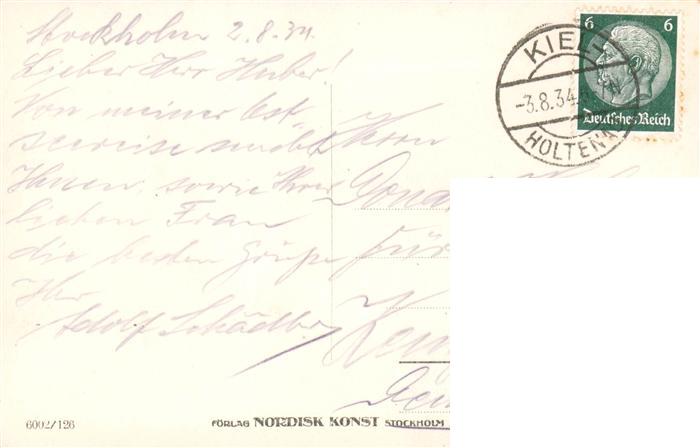 Stockholm 2.8.34.
Lieber Herr Huber!
Von meiner Ost-
seereise sendet
Ihnen, sowie Ihrer
lieben Frau
die besten Grüße
Ihr
Adolf
Herrn
für
KIEL-
-3.8.34.
HOLTENAU
6 6
Deutsches Reich
6002/126
FÖRLAG NORDISK KONST STOCKHOLM